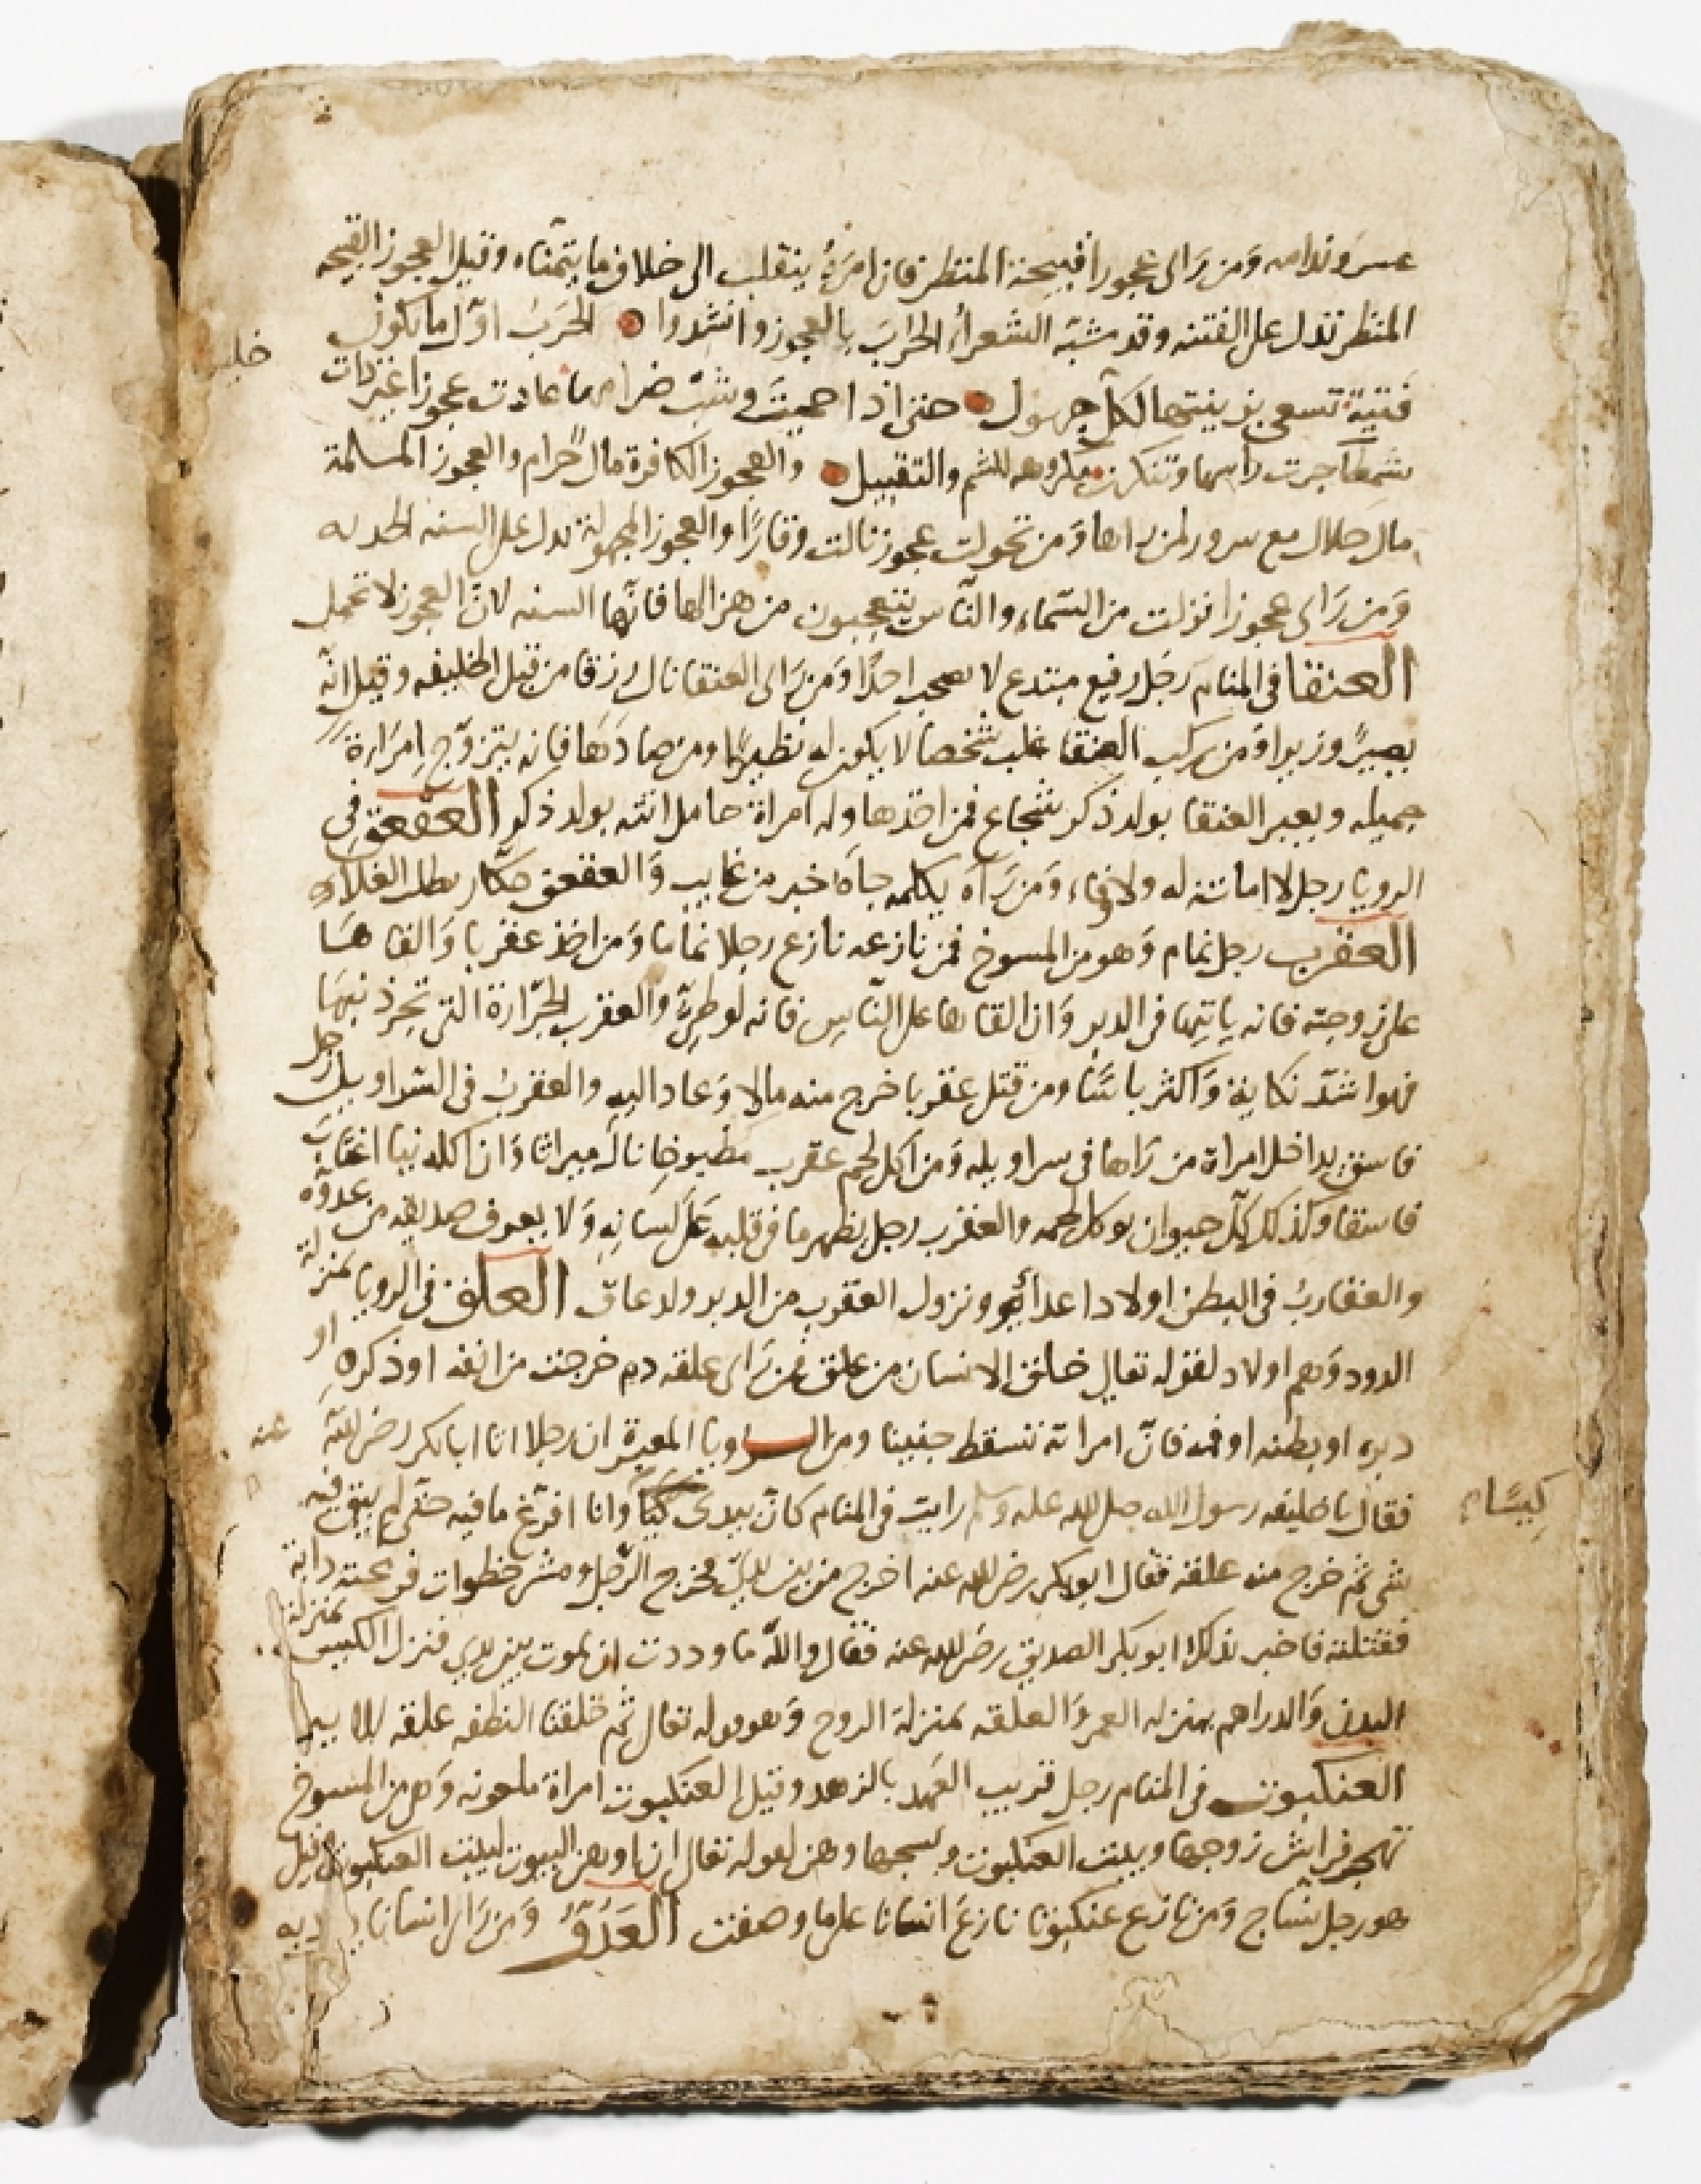 عسر وندامه وَمن رَاى عجوزا قبيحة المنظر فان امرَهُ ينقلب الى خلاف ما يتمناه وقيل العجوز القبيحه
المنظر تدل على الفتنه وقد شبّه الشعرأ الحرَب بالعجوز وانشدوا الحَرَبُ اوّل ما تكون
خليـ
فَتيَةً تسعى بزينتها لكل جهول حتى اذا حميتَ وشبّ ضرامها عادت عجوزا غير ذات
شمطآ جزت رأسها وتنكرت مكروهه للشم والتقبيل والعجوز الكافرة مال حرام والعجوز المسلمة
مال حلال مع سرور لمن راها وَمن تحولت عجوز نالت وقارًا والعجوز المجهولة تدل على السنه الجدبه
وَمن رَاى عجوزا نزلت من السّماء والنّاس يتعجبون من هزالها فانّها السنه لانّ العجوز لا تحمل
العنقا في المنام رَجل رفيع مبتدع لا يصحب احدًا وَمن رَاى العنقا نال رزقا من قبل الخليفه وقيل انّه
يصيرُ وزيرا وَمن ركب العنقا غلب شخصا لا يكون له نظيرًا ومن صادَهَا فانه يتزوّج اِمرَاة
جميله ويعبر العنقا بولد ذكر شجاع فمن اخذها وله امراة حامل اتته بولد ذكر العقعق في
الرويا رجل لا امانته له ولا وفاء وَمن رَآه يكلمه جاَه خبر من غايب وَالعقعق حكار يطلب الغلاء
العقرب رجل نمام وَهو من المسوخ فمن نازعه نازع رجلا نماما وَمن اخذ عقربا وَالقاهَا
على زوجته فانه ياتيها في الدبر وَان القاها على النّاس فانه لوطِيٌّ والعقرب الجرّارة التي تجر ذنبهَا
فهو اشدّ نكاية وَاكثر باسًا ومن قتل عقربا خرج منه مالا وَعاد اليه والعقربُ في السراويل رجل
فاسق يداخل امراة من رَاها في سراويله وَمن اَكل لحم عقرب مطبوخا نال ميراثا وَان اكله نيا اغتَابَ
فاسقا وكذلك كلّ حيوان يوكل لحمه والعقرب رجل يظهر ما في قلبه عَلَى لسَانِهِ وَلا يعرف صديقه من عدوّه
والعقاربُ في البطن اولادا عدأ ونزول العقرب من الدبر ولد عاق العلق في الرويا بمنزلة
الدود وَهم اولاد لقوله تعالى خلق الانسان من علق فمن رَاى علقه دم خرجت من انفه او ذكره او
دبره او بطنه او فمه فانّ امراته تسقط جنينا ومن الرويا المعبرة ان رجلا اتا ابا بكر رضى الله عنه
فقال يا خليفه رسول الله صلى الله عليه وسلم رايت في المنام كانّ بيدى كيسًا وانا افرّغ ما فيه حتى لم يبق فيه
كِيسًا
شى ثم خرج منه علقة فقال ابو بكر رضى الله عنه اخرج من بين يديّ فخرج الرّجل ومشى خطوات فرمحته دابة
فقتلته فاخبر بذلك ابو بكر الصديق رضى الله عنه فقال والله ما وددت ان يموت بين يدي فنزل الكيس بمنزلة
البدن وَالدراهم بمنزله العمر وَالعلقه بمنزلة الروح وَهو قوله تعالى ثم خلقنا النطفه علقه
العنكبوت في المنام رجل قريب العَهد بالزهد وقيل العنكبوت امراة ملعونه وَهى من المسوخ
تهجر فراش زوجها وبيت العنكبوت ونسجها وهن لقوله تعالى ان اوهن البيوت لبيت العنكبوت وقيل
هو رجل نساج وَمن نازع عنكبوتا نازعَ انسانا على ما وصفت العَدَوُّ وَمن رَاى انسانا